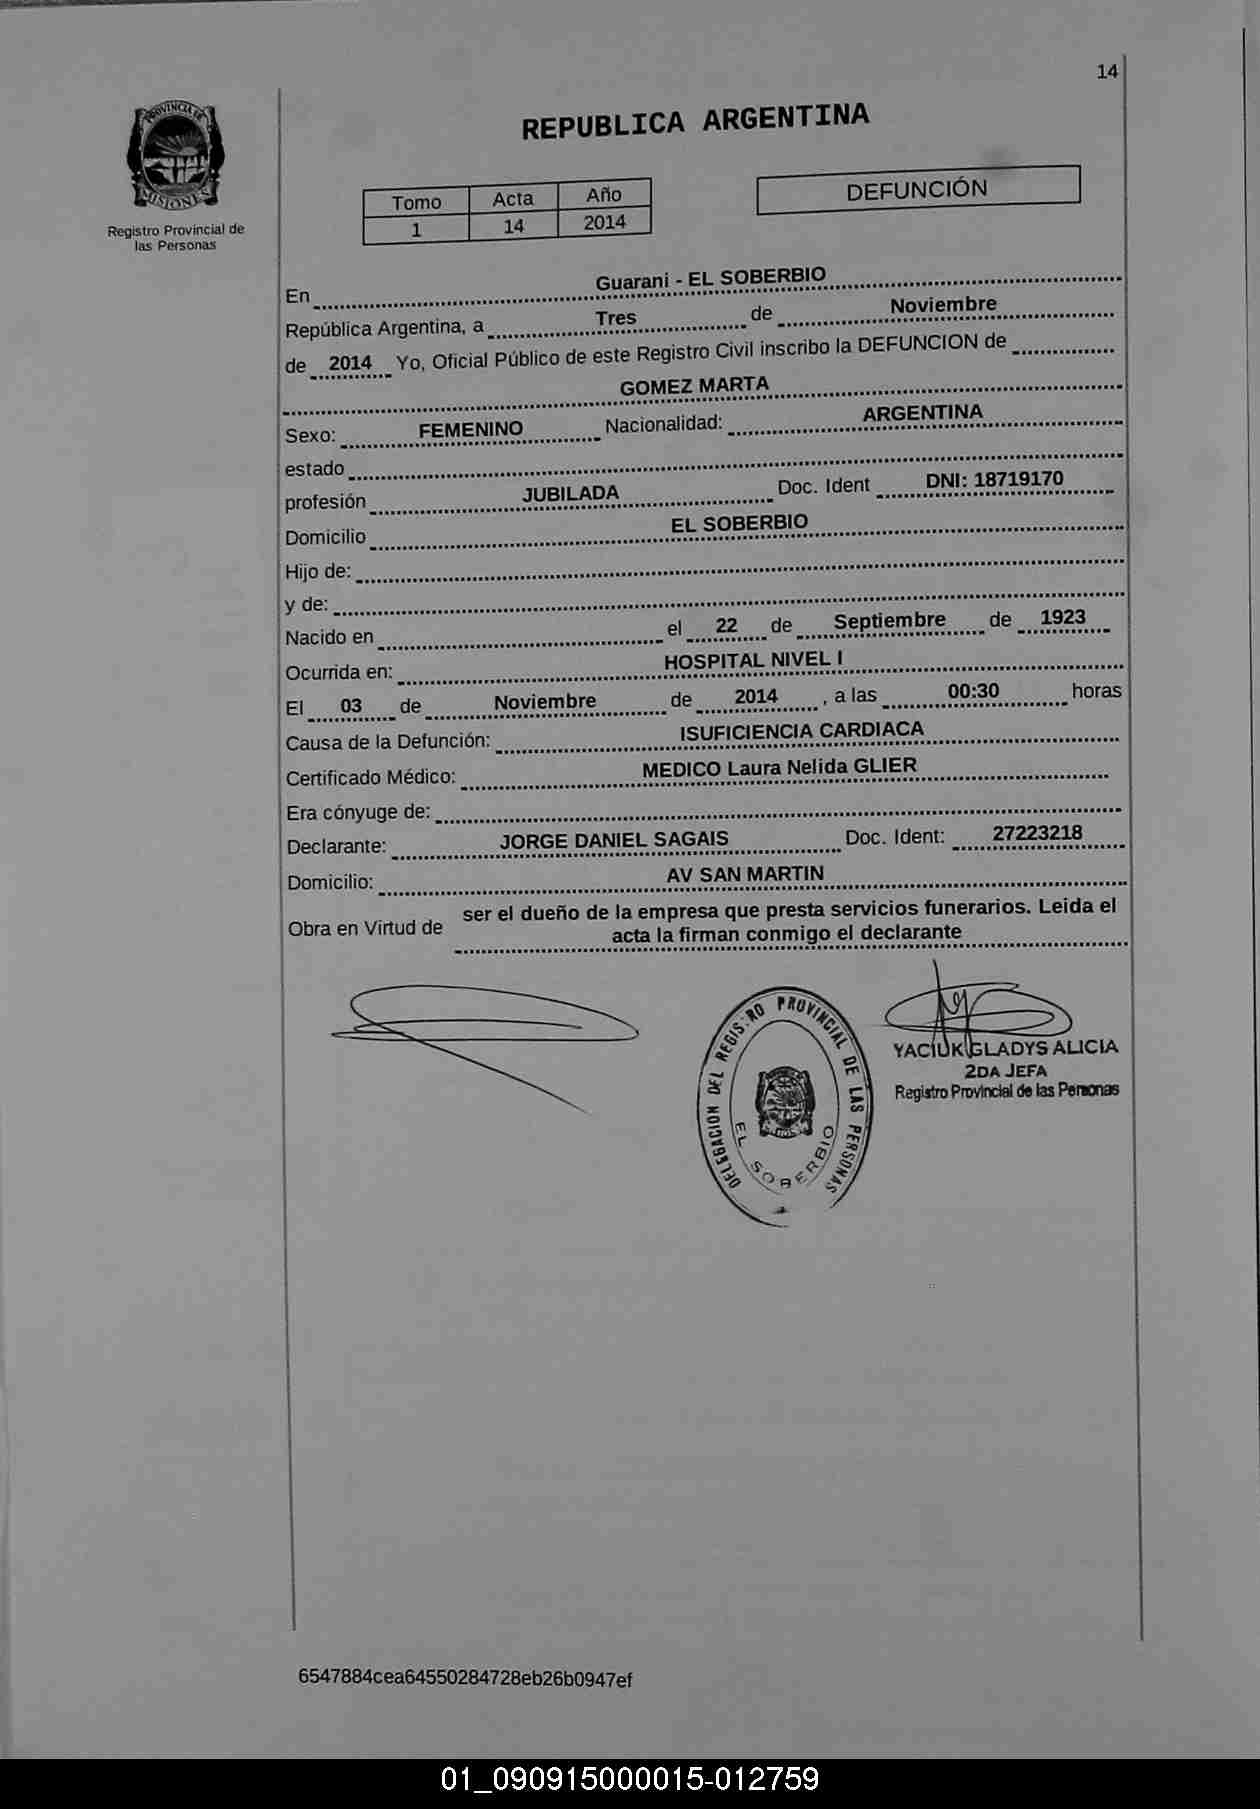 14
PROVINCIA DE
MISIONES
Registro Provincial de
las Personas
REPUBLICA ARGENTINA
Tomo Acta Año
1 14 2014
DEFUNCIÓN
En Guarani - EL SOBERBIO
República Argentina, a Tres de Noviembre
de 2014 Yo, Oficial Público de este Registro Civil inscribo la DEFUNCION de
GOMEZ MARTA
Sexo: FEMENINO Nacionalidad: ARGENTINA
estado
profesión JUBILADA Doc. Ident DNI: 18719170
Domicilio EL SOBERBIO
Hijo de:
y de:
Nacido en el 22 de Septiembre de 1923
Ocurrida en: HOSPITAL NIVEL I
El 03 de Noviembre de 2014 , a las 00:30 horas
Causa de la Defunción: ISUFICIENCIA CARDIACA
Certificado Médico: MEDICO Laura Nelida GLIER
Era cónyuge de:
Declarante: JORGE DANIEL SAGAIS Doc. Ident: 27223218
Domicilio: AV SAN MARTIN
Obra en Virtud de ser el dueño de la empresa que presta servicios funerarios. Leida el
acta la firman conmigo el declarante
DELEGACION DEL REGISTRO PROVINCIAL DE LAS PERSONAS
EL SOBERBIO
YACIUK GLADYS ALICIA
2DA JEFA
Registro Provincial de las Personas
6547884cea64550284728eb26b0947ef
01_090915000015-012759